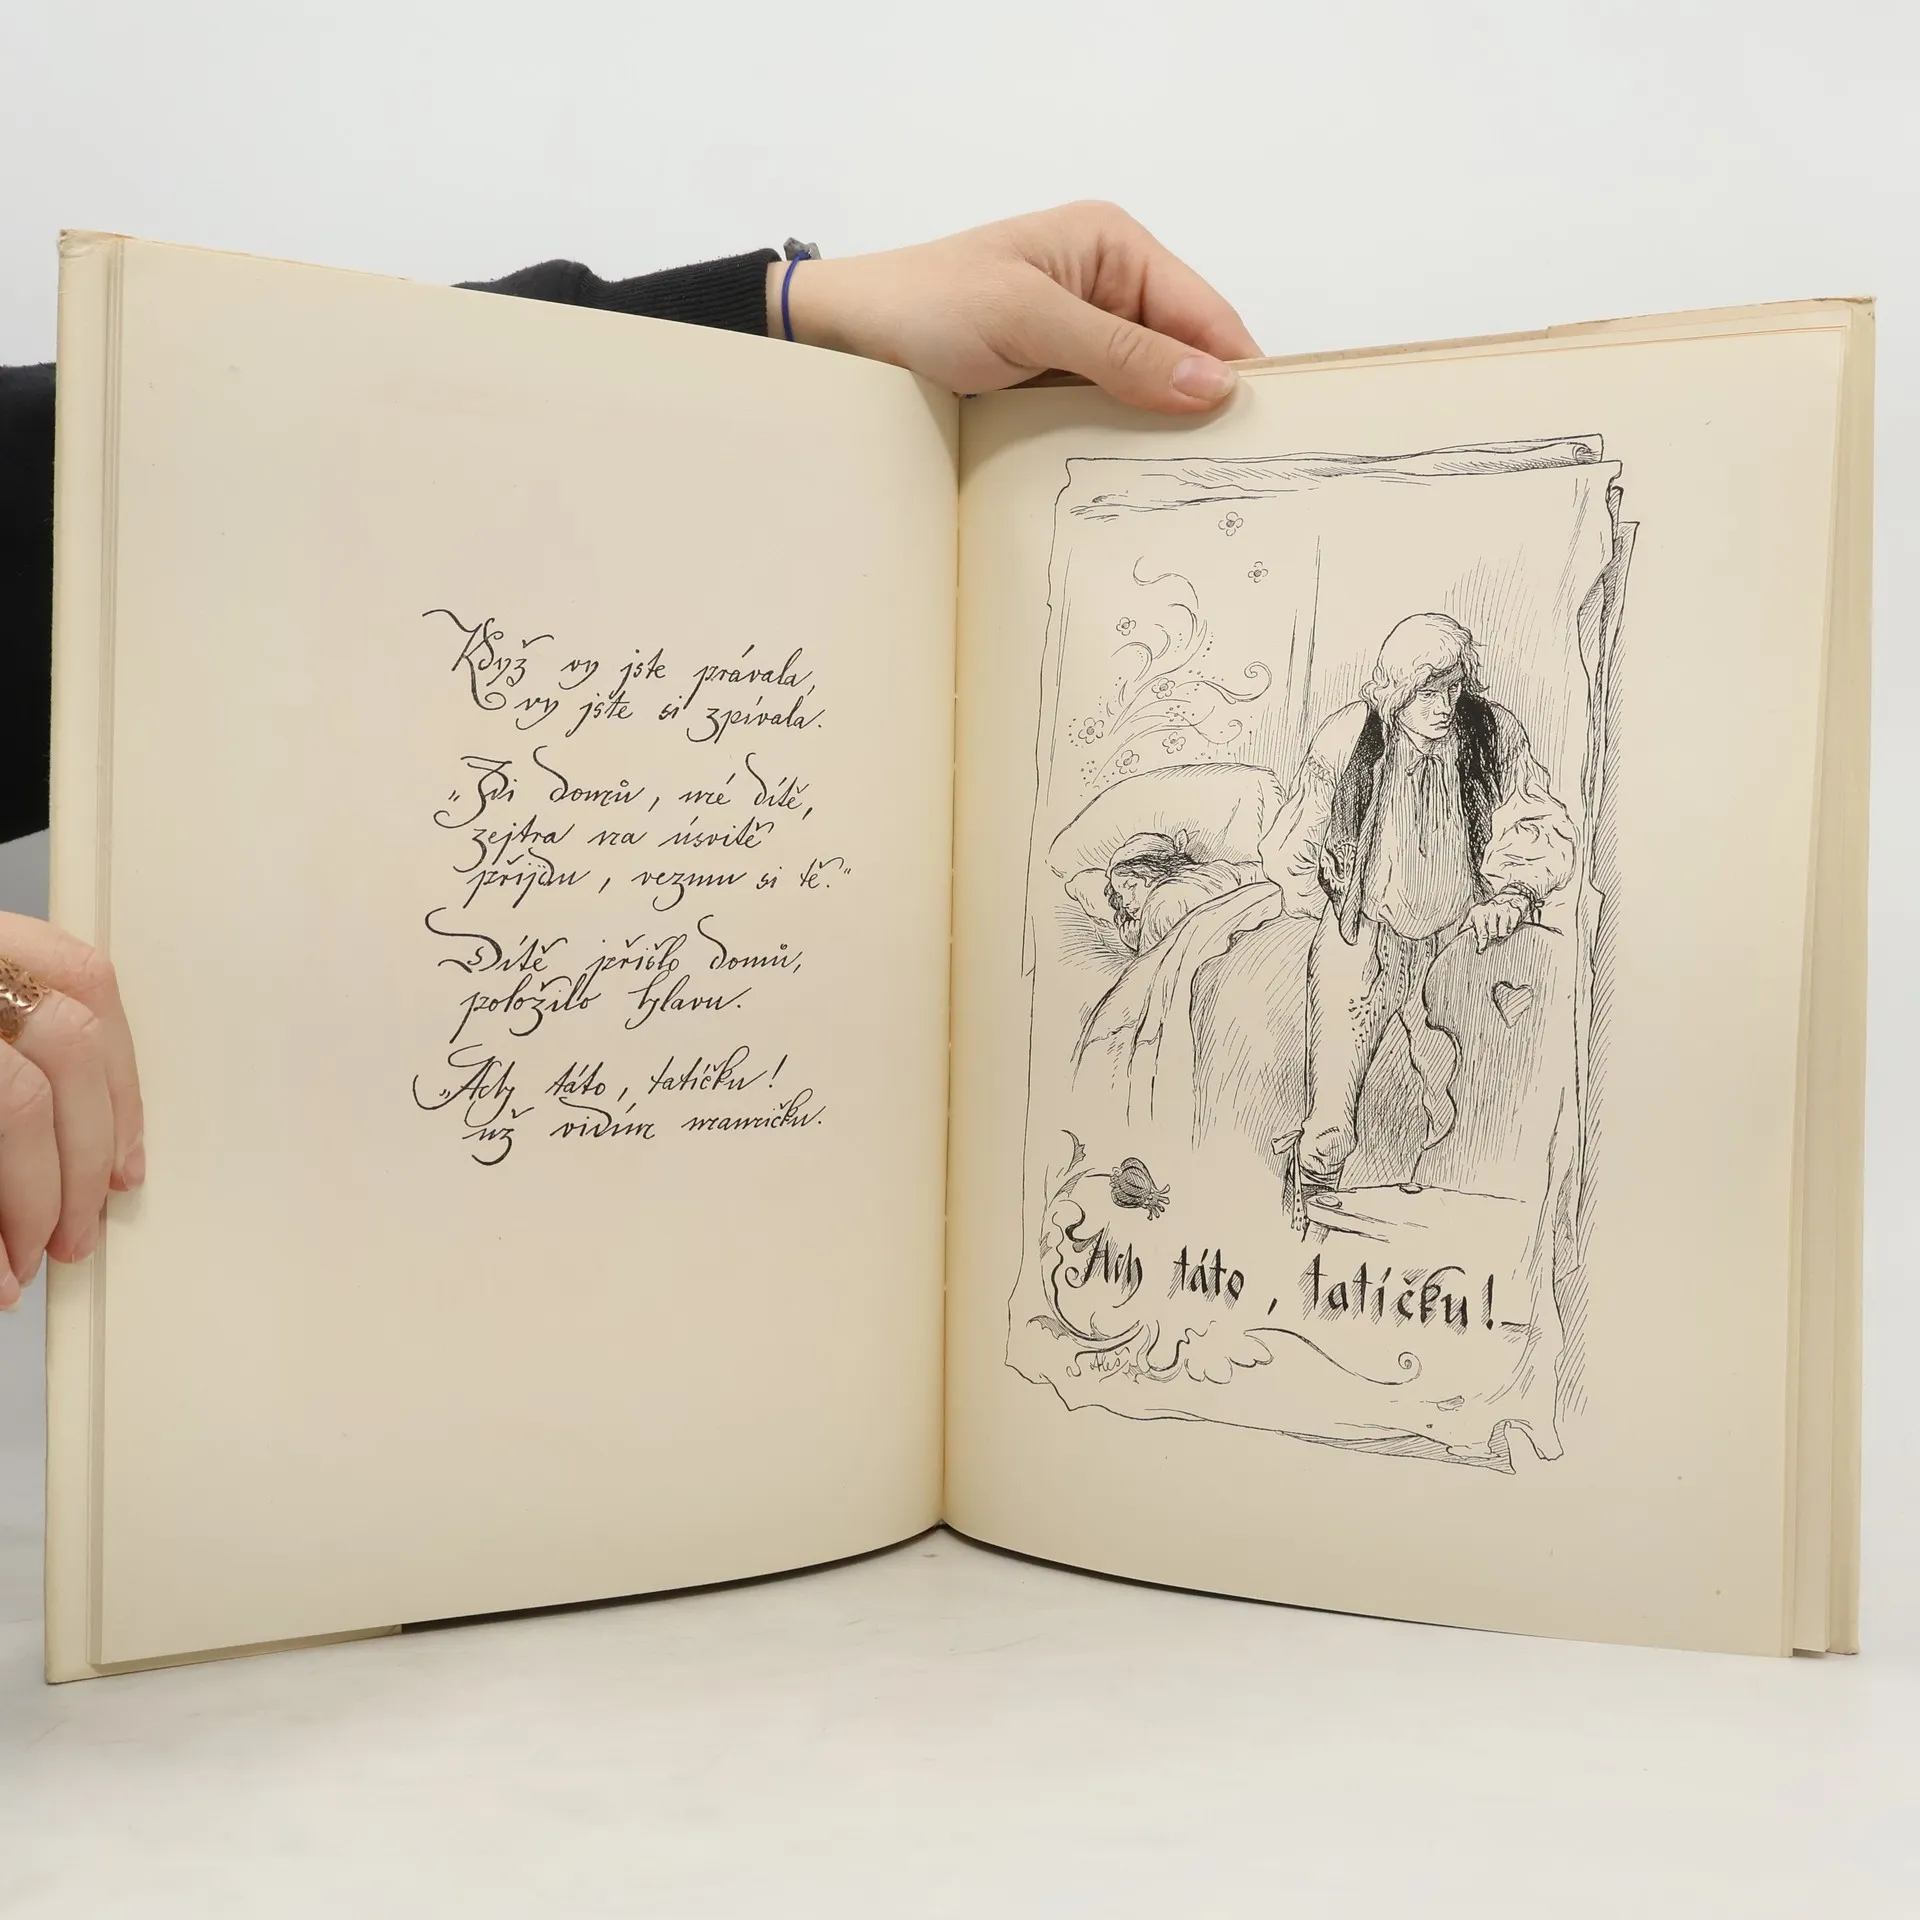 Když vy jste právala,
vy jste si zpívala.
„Jdi domů, mé dítě,
zejtra na úsvitě
přijdu, vezmu si tě.“
Dítě přišlo domů,
položilo hlavu.
„Ach táto, tatíčku!
už vidím mamičku.
Ach táto, tatíčku!_
Aleš